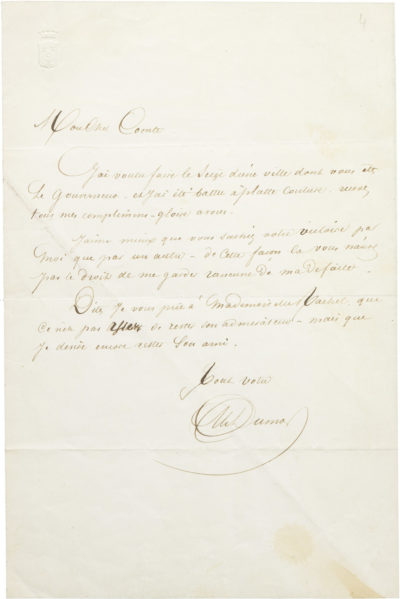 4
Mon cher Comte
J'ai voulu faire le siege d'une ville dont vous etes
le Gouverneur - et j'ai été battu à platte couture - recevez
tous mes complimens - gloire a vous -
J'aime mieux que vous sachiez votre victoire par
moi que par un autre - de cette façon la vous n'aurez
pas le droit de me garder rancune de ma defaite -
Dites je vous prie à Mademoiselle Rachel, que
ce n'est pas de rester son admirateur - mais que
je désire encore rester son ami.
Tout votre
Alex Dumas